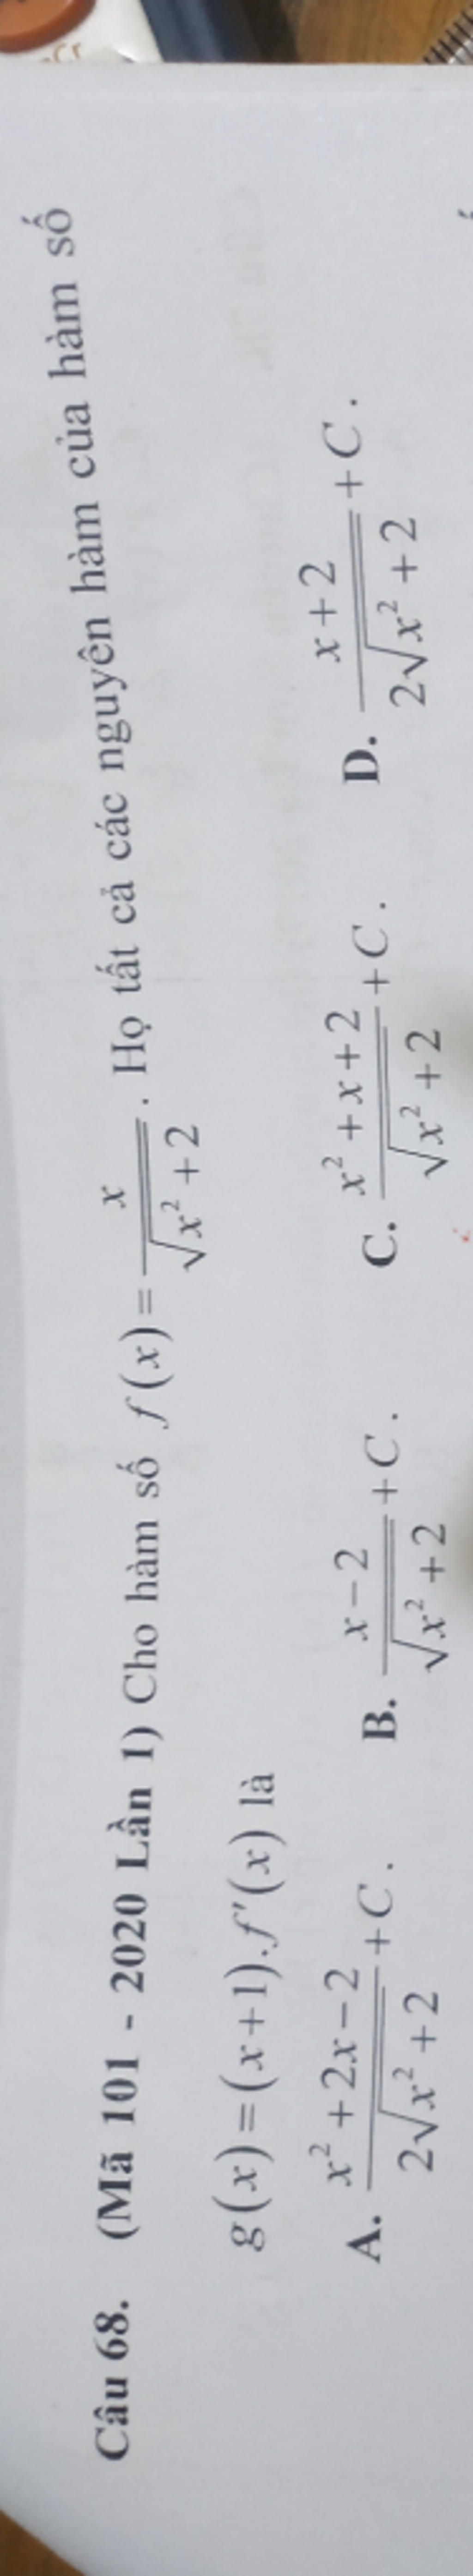 Câu 68. (Mã 101 - 2020 Lần 1) Cho hàm số f(x) = x/√(x² + 2). Họ tất cả các nguyên hàm của hàm số
g(x) = (x+1).f'(x) là
A. (x² + 2x − 2)/(2√(x² + 2)) + C. B. (x − 2)/√(x² + 2) + C. C. (x² + x + 2)/√(x² + 2) + C. D. (x + 2)/(2√(x² + 2)) + C.